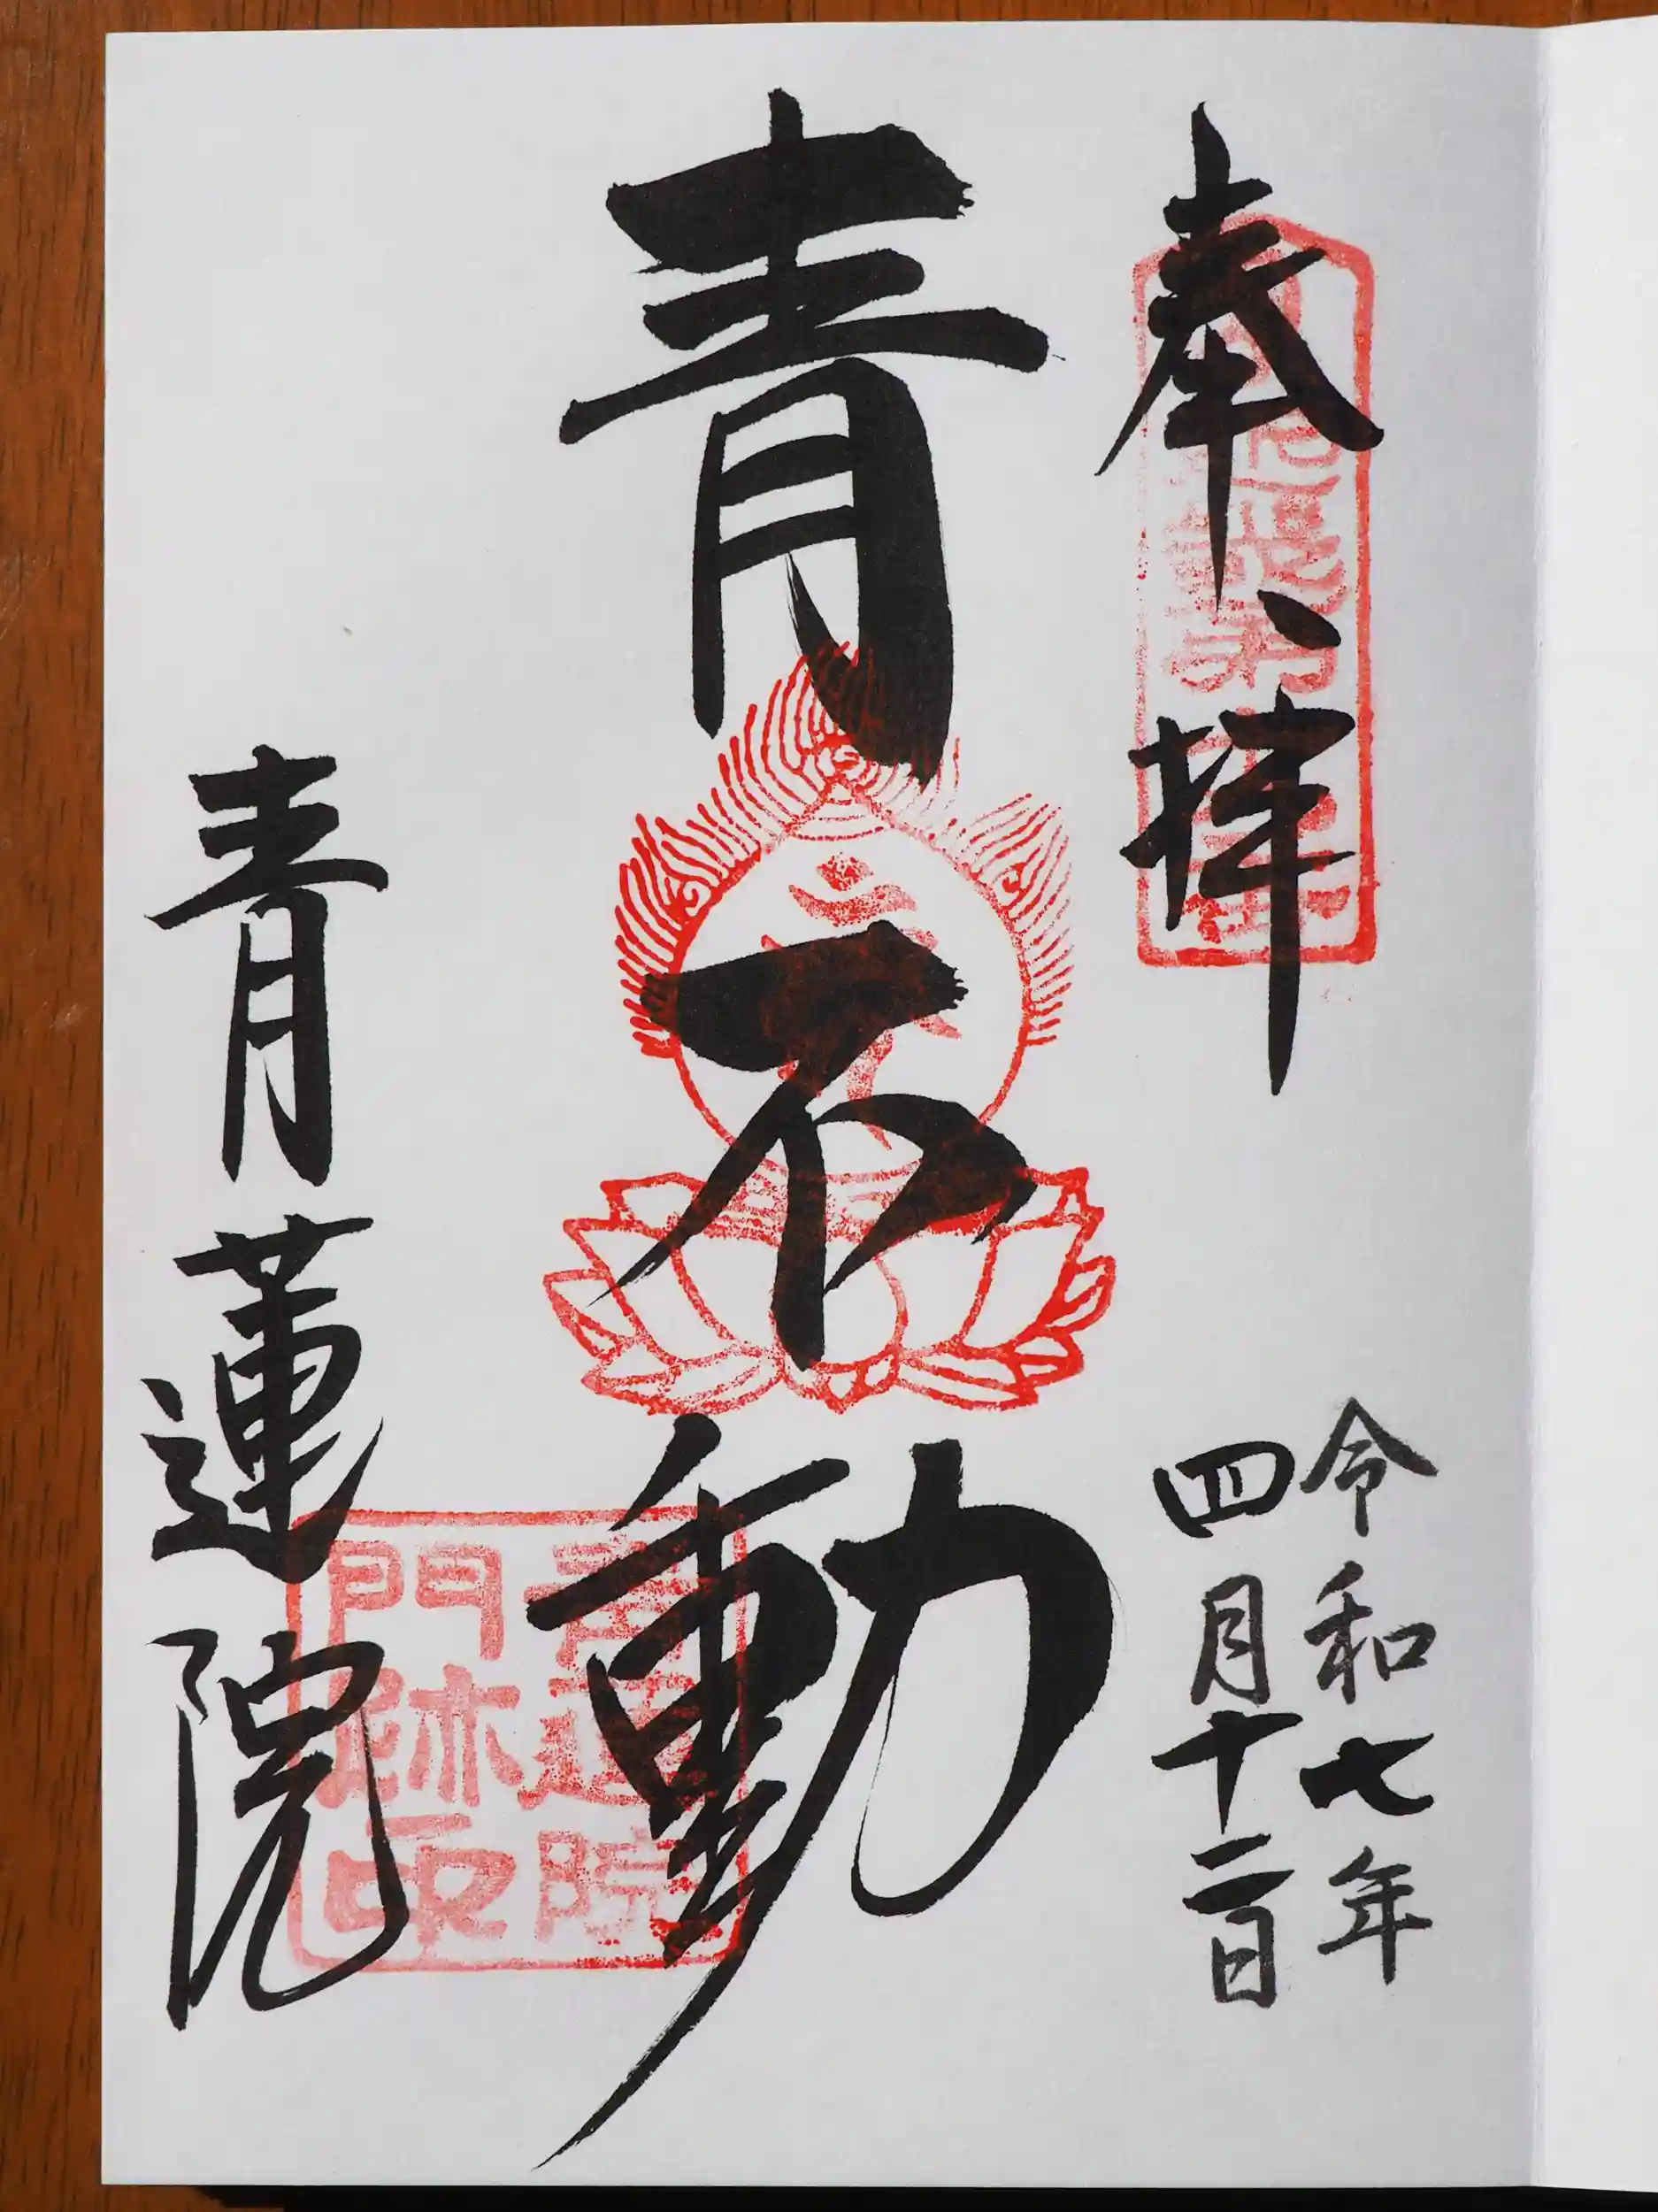 奉拝
令和七年
四月十二日
青不動
青蓮院
青蓮院
門跡印